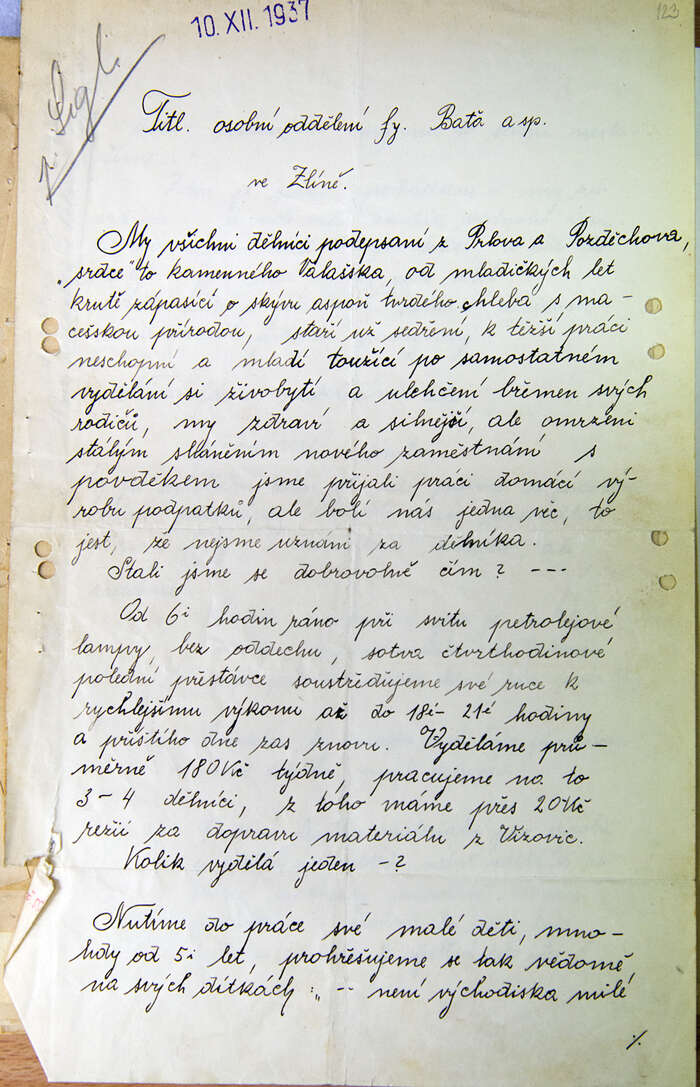 10. XII. 1937
123
Titl. osobní oddělení fy. Baťa a sp.
ve Zlíně.
My všichni dělníci podepsaní z Prlova a Pozděchova,
„srdce" to kamenného Valašska, od mladičkých let
krutě zápasící o skývu aspoň tvrdého chleba s ma-
cešskou přírodou, staří už sedření, k těžší práci
neschopní a mladí toužící po samostatném
vydělání si živobytí a ulehčení břemen svých
rodičů, my zdraví a silnější, ale omrzeni
stálým sháněním nového zaměstnání s
povděkem jsme přijali práci domácí vý-
robu podpatků, ale bolí nás jedna věc, to
jest, že nejsme uznáni za dělníka.
Stali jsme se dobrovolně čím? ---
Od 6i hodin ráno při svitu petrolejové
lampy, bez oddechu, sotva čtvrthodinové
polední přestávce soustřeďujeme své ruce k
rychlejšímu výkonu až do 18é- 21é hodiny
a příštího dne zas znovu. Vyděláme prů-
měrně 180 Kč týdně, pracujeme na to
3-4 dělníci, z toho máme přes 20 Kč
režií za dopravu materiálu z Vizovic.
Kolik vydělá jeden -?
Nutíme do práce své malé děti, mno-
hdy od 5i let, prohřešujeme se tak vědomě
na svých dítkách :„ -- není východiska milé
./.